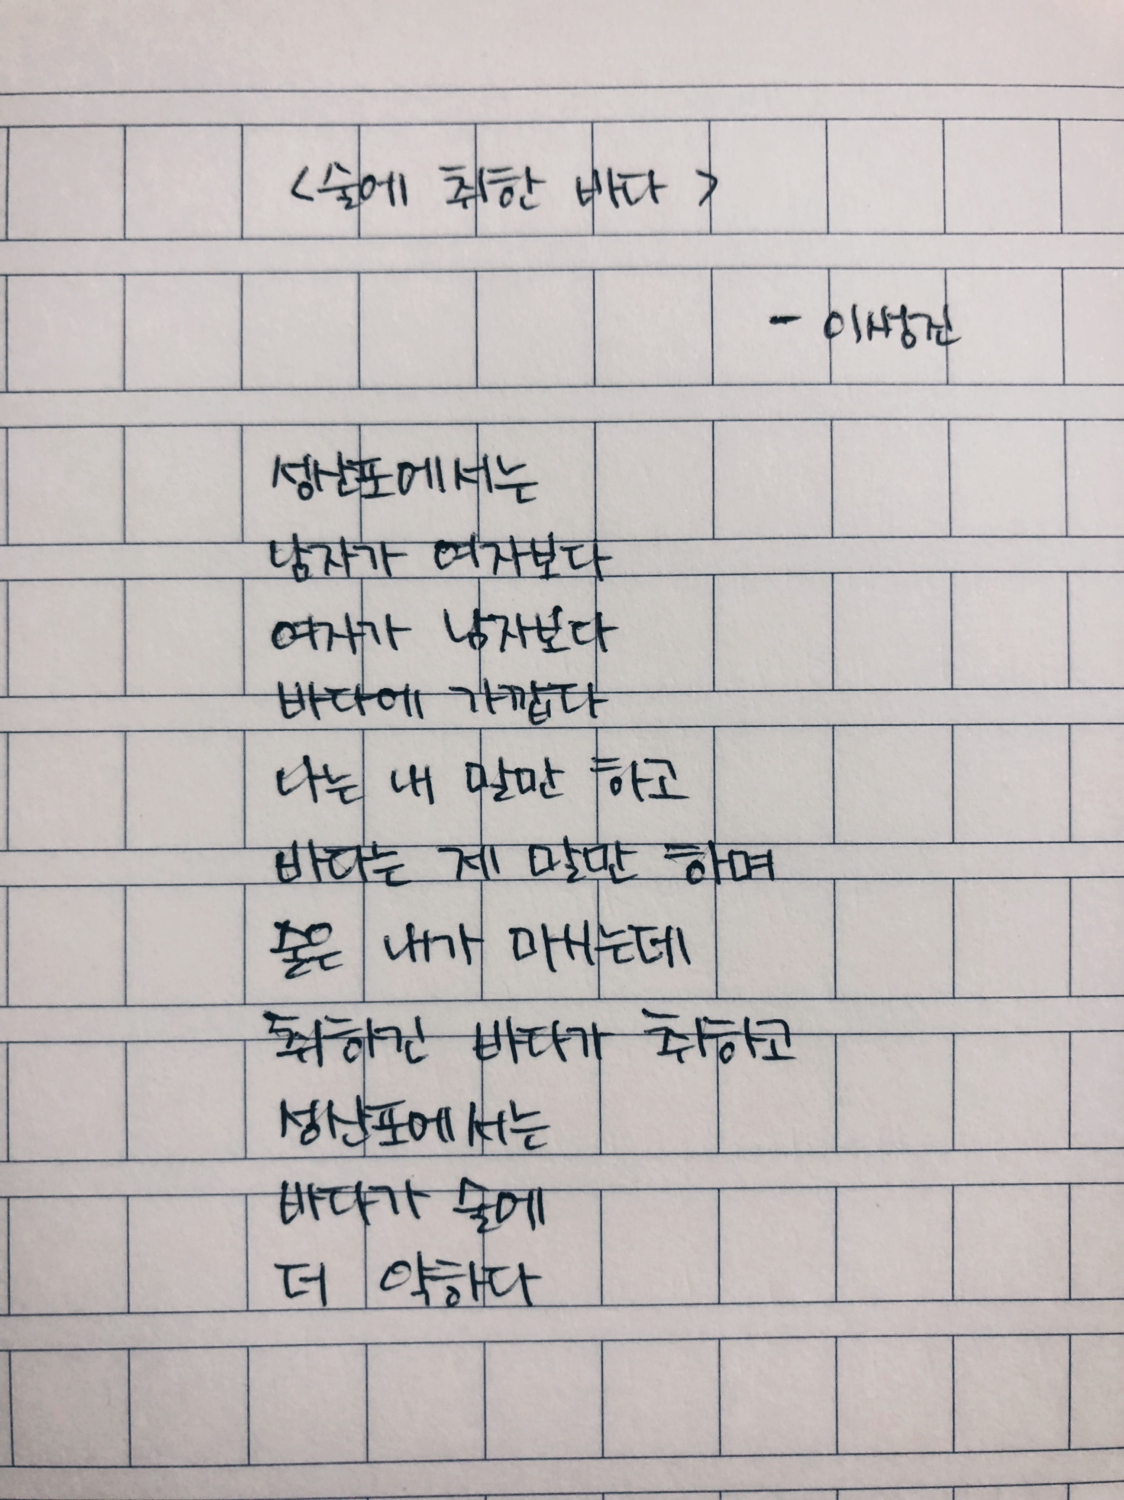 <술에 취한 바다>
- 이생진
성산포에서는
남자가 여자보다
여자가 남자보다
바다에 가깝다
나는 내 말만 하고
바다는 제 말만 하며
술은 내가 마시는데
취하긴 바다가 취하고
성산포에서는
바다가 술에
더 약하다